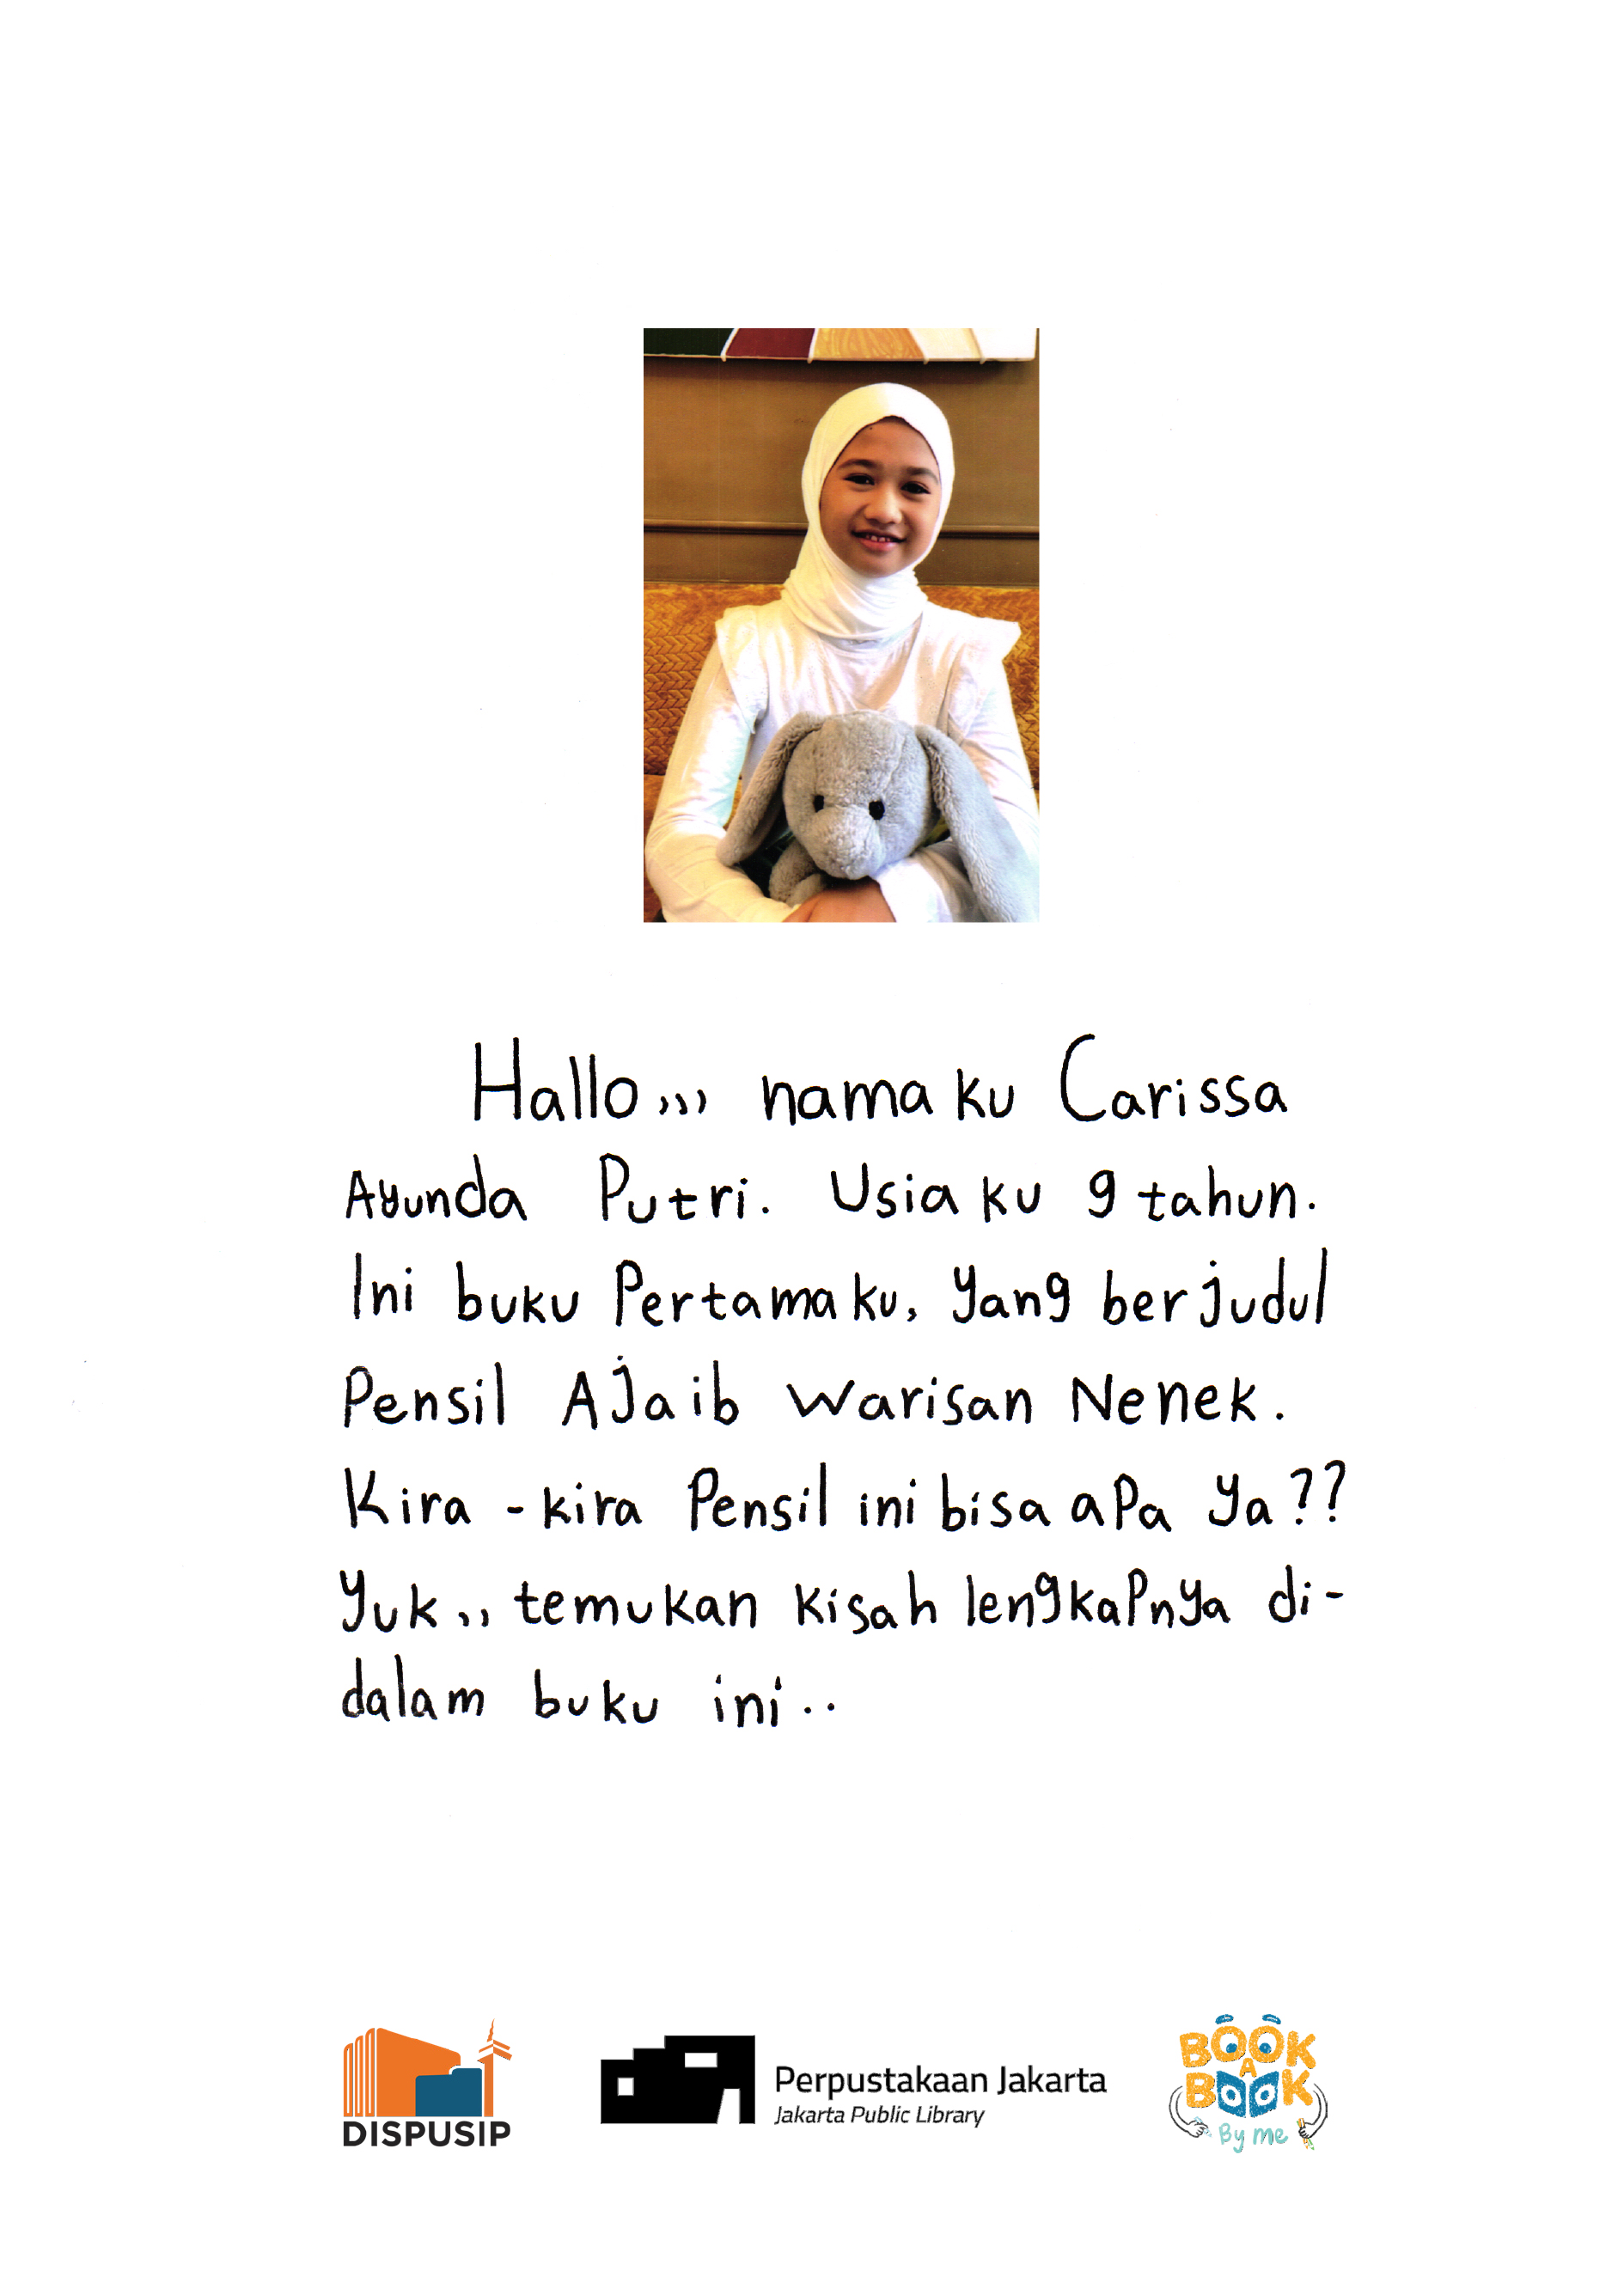 Hallo,,, namaku Carissa
Ayunda Putri. Usiaku 9 tahun.
Ini buku Pertamaku, yang berjudul
Pensil AJaib Warisan Nenek.
Kira-kira Pensil ini bisa apa ya??
Yuk,, temukan kisah lengkapnya di-
dalam buku ini..
DISPUSIP
Perpustakaan Jakarta
Jakarta Public Library
BOOK
A
BOOK
By me